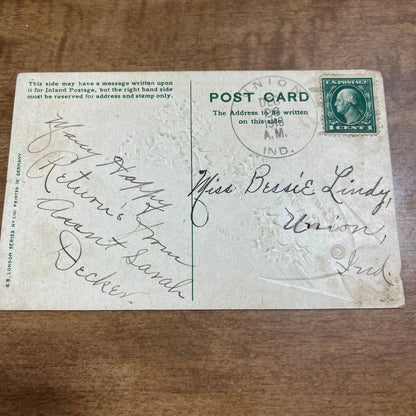 This side may have a message written upon
it for Inland Postage, but the right hand side
must be reserved for address and stamp only.
POST CARD
The Address to be written
on this side.
UNION
DEC
A.M.
IND.
U.S. POSTAGE
1 CENT 1
Many Happy
Returns from
Aunt Sarah
Decker.
Miss Bessie Lindy,
Union,
Ind.
PRINTED IN GERMANY
LONDON SERIES